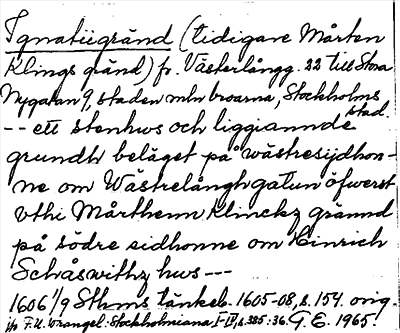 Ignatiigränd (tidigare Mårten
Klings gränd) fr. Västerlångg. 22 till Stora
Nygatan 9, staden mln broarna, Stockholms
stad.
-- ett stenhws och liggiannde
grundh beläget på wästresijdhon-
ne om Wästrelånghgatun öfwerst
vthi Mårthenn Klinckz grännd
på södre sidhonne om Hinrich
Schåswithz hws ---
1606 1/9 Sthms tänkeb. 1605-08, s. 154. orig.
jfr F.U. Wrangel: Stockholmiana I-IV, s. 385: 36. G.E. 1965.